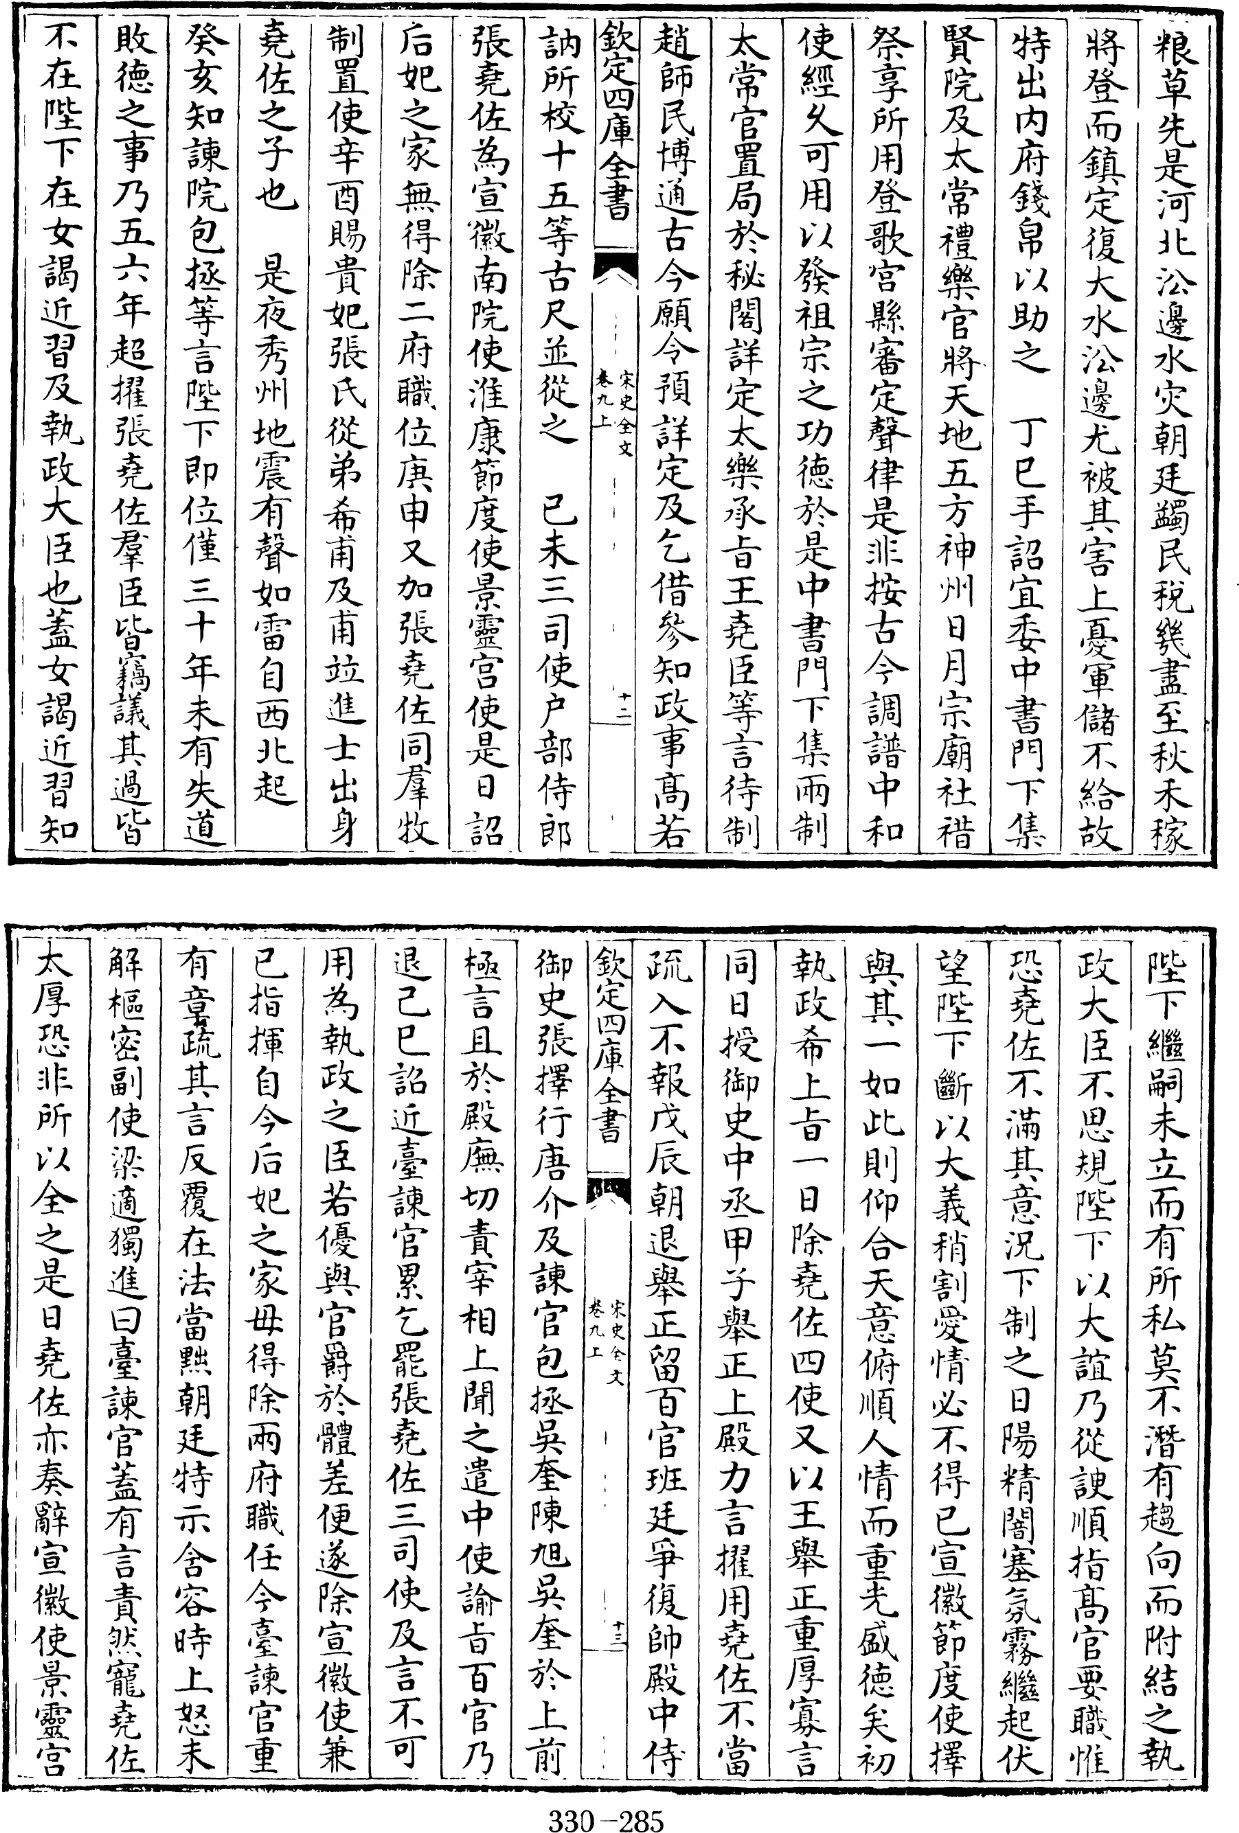 粮草先是河北㳂邊水灾朝廷蠲民稅幾盡至秋禾稼
將登而鎮定復大水㳂邊尤被其害上憂軍儲不給故
特出内府錢帛以助之　丁巳手詔宜委中書門下集
賢院及太常禮樂官將天地五方神州日月宗廟社禇
祭享所用登歌宫縣審定聲律是非按古今調譜中和
使經乆可用以發祖宗之功德於是中書門下集兩制
太常官置局於秘閣詳定太樂承㫖王堯臣等言待制
趙師民博通古今願令預詳定及乞借參知政事髙若
欽定四庫全書
宋史全文
卷九上
十二
訥所校十五等古尺並從之　己未三司使户部侍郎
張堯佐為宣徽南院使淮康節度使景靈宫使是日詔
后妃之家無得除二府職位庚申又加張堯佐同羣牧
制置使辛酉賜貴妃張氏從弟希甫及甫竝進士出身
堯佐之子也　是夜秀州地震有聲如雷自西北起
癸亥知諫院包拯等言陛下即位僅三十年未有失道
敗徳之事乃五六年超擢張堯佐羣臣皆竊議其過皆
不在陛下在女謁近習及執政大臣也蓋女謁近習知
陛下繼嗣未立而有所私莫不潛有趨向而附結之執
政大臣不思規陛下以大誼乃從諛順指髙官要職惟
恐堯佐不滿其意況下制之日陽精闇塞氛霧繼起伏
望陛下斷以大義稍割愛情必不得已宣徽節度使擇
與其一如此則仰合天意俯順人情而重光盛徳矣初
執政希上㫖一日除堯佐四使又以王舉正重厚寡言
同日授御史中丞甲子舉正上殿力言擢用堯佐不當
疏入不報戊辰朝退舉正留百官班廷爭復帥殿中侍
欽定四庫全書
宋史全文
卷九上
十三
御史張擇行唐介及諫官包拯吳奎陳旭吳奎於上前
極言且於殿廡切責宰相上聞之遣中使諭㫖百官乃
退己巳詔近臺諫官累乞罷張堯佐三司使及言不可
用為執政之臣若優與官爵於體差便遂除宣徽使兼
已指揮自今后妃之家毋得除兩府職任今臺諫官重
有章疏其言反覆在法當黜朝廷特示含容時上怒未
解樞密副使梁適獨進曰臺諫官蓋有言責然寵堯佐
太厚恐非所以全之是日堯佐亦奏辭宣徽使景靈宫
330-285